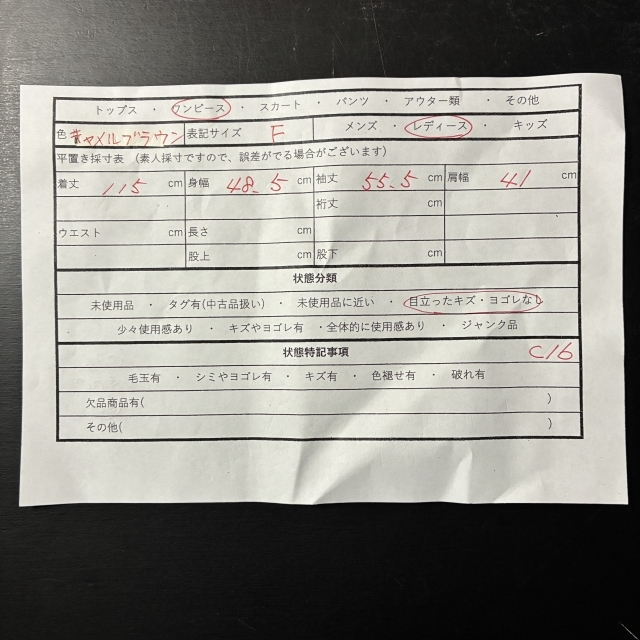 トップス ・ ワンピース ・ スカート ・ パンツ ・ アウター類 ・ その他
色 キャメルブラウン 表記サイズ F メンズ ・ レディース ・ キッズ
平置き採寸表 （素人採寸ですので、誤差がでる場合がございます）
着丈 115 cm 身幅 48.5 cm 袖丈 55.5 cm 肩幅 41 cm
裄丈 cm
ウエスト cm 長さ cm
股上 cm 股下 cm
状態分類
未使用品 ・ タグ有(中古品扱い) ・ 未使用品に近い ・ 目立ったキズ・ヨゴレなし
少々使用感あり ・ キズやヨゴレ有 ・全体的に使用感あり ・ ジャンク品
状態特記事項 C16
毛玉有 ・ シミやヨゴレ有 ・ キズ有 ・ 色褪せ有 ・ 破れ有
欠品商品有( )
その他( )